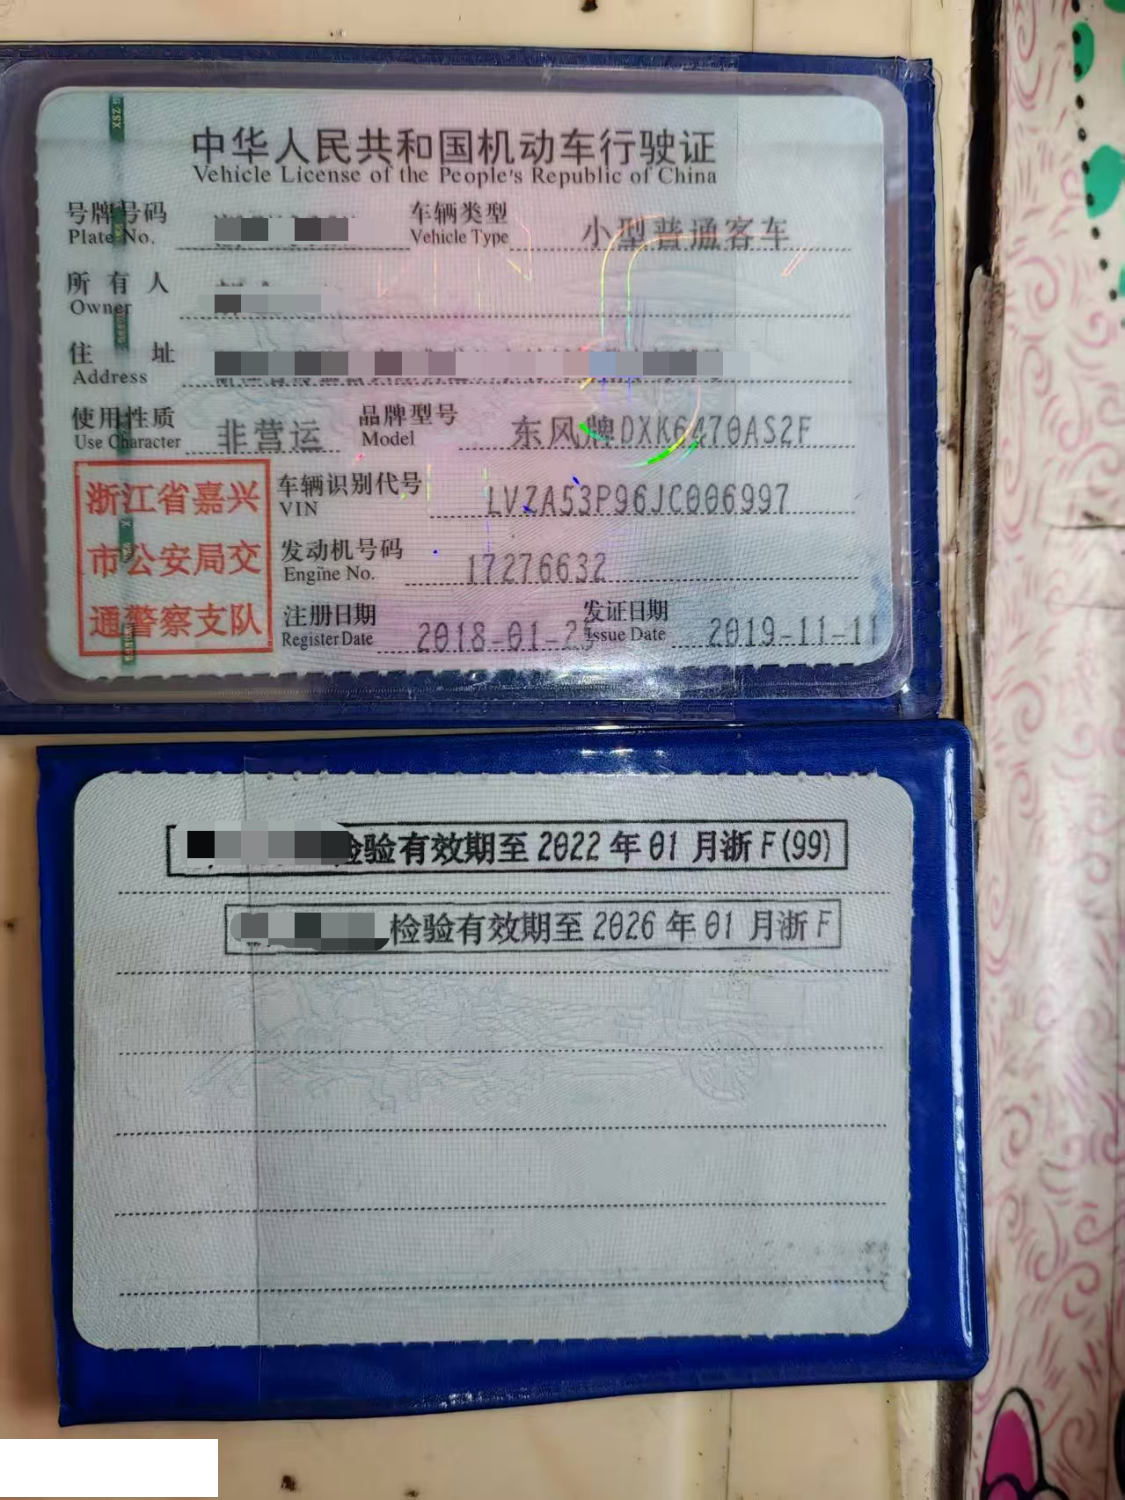 中华人民共和国机动车行驶证
Vehicle License of the People's Republic of China
号牌号码 车辆类型 小型普通客车
Plate No. Vehicle Type
所有人
Owner
住址
Address
使用性质 非营运 品牌型号 东风牌DXK6470AS2F
Use Character Model
浙江省嘉兴
市公安局交
通警察支队
车辆识别代号 LVZA53P96JC006997
VIN
发动机号码 17276632
Engine No.
注册日期 2018-01-23 发证日期 2019-11-11
Register Date Issue Date
检验有效期至2022年01月浙F(99)
检验有效期至2026年01月浙F